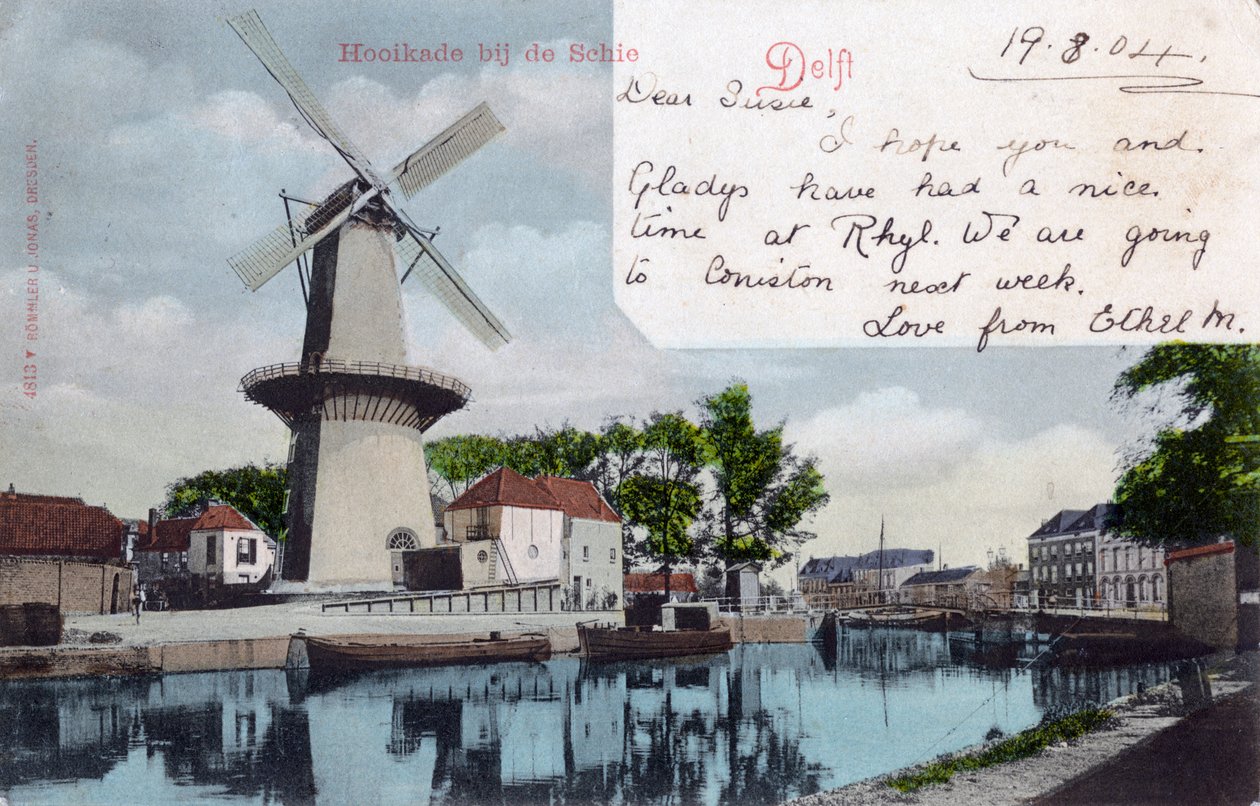 Hooikade bij de Schie
Delft
19.8.04.
Dear Susie,
I hope you and
Gladys have had a nice
time at Rhyl. We are going
to Coniston next week.
Love from Ethel M.
4813 ▼ RÖMMLER U. JONAS, DRESDEN.